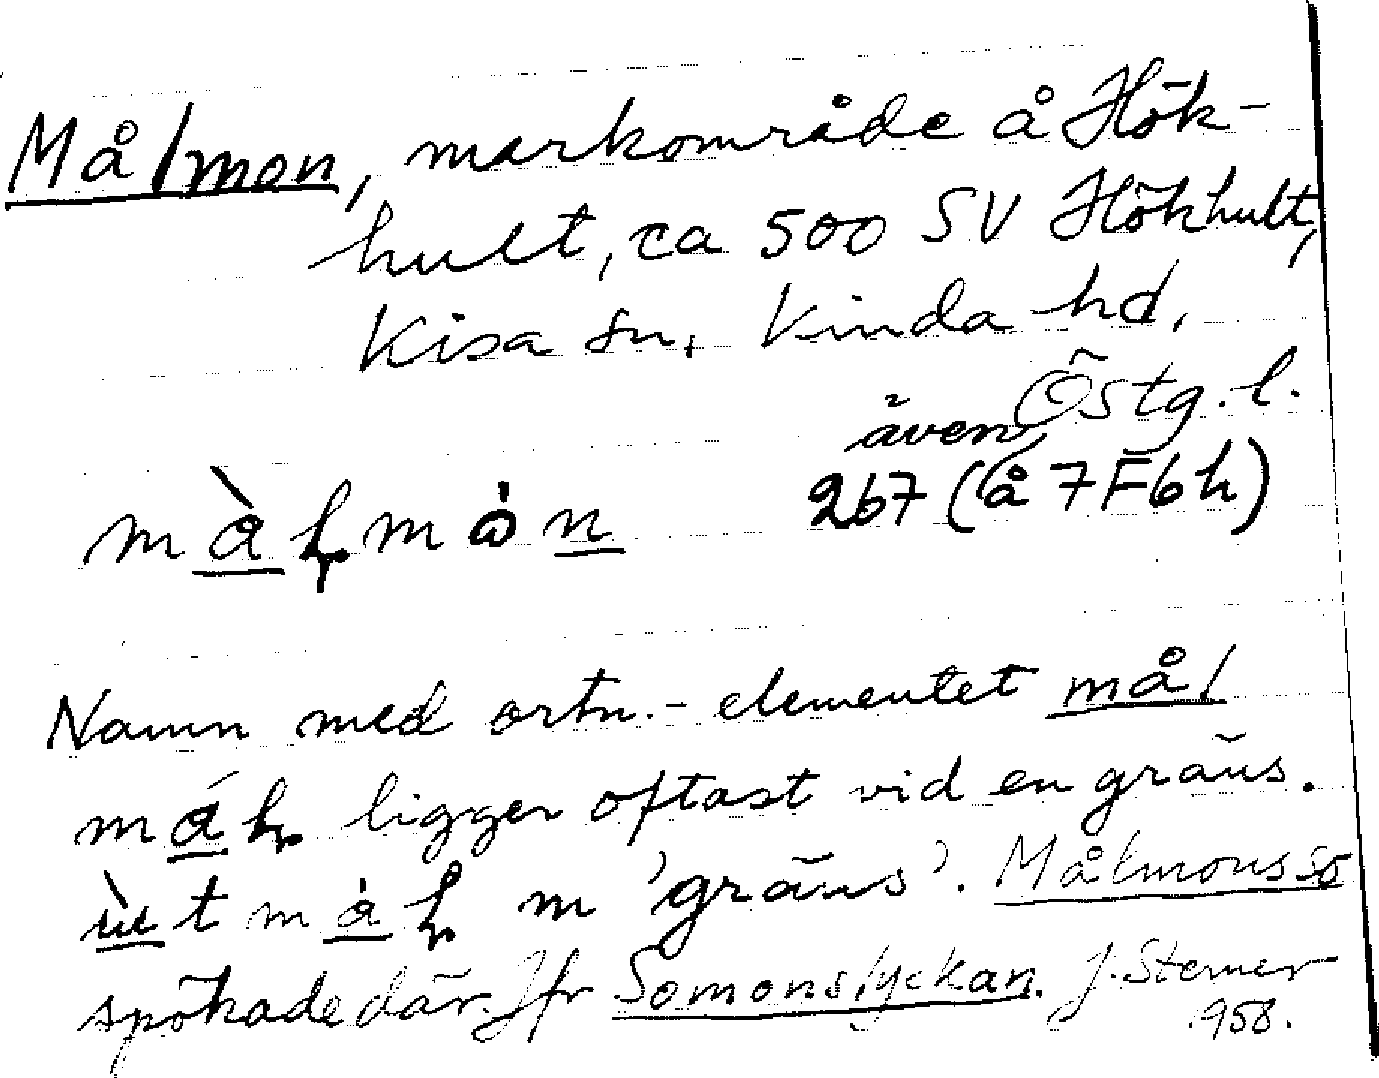 Målmon, markområde å Hök-
hult, ca 500 SV Hökhult,
Kisa sn, Kinda hd,
Östg. l.
även
267 (å 7F6h)
Namn med ortn.- elementet mål
ligger oftast vid en gräns.
m 'gräns'. Målmonsso
spökade där. Jfr Somonslyckan. J. Sterner
1958.